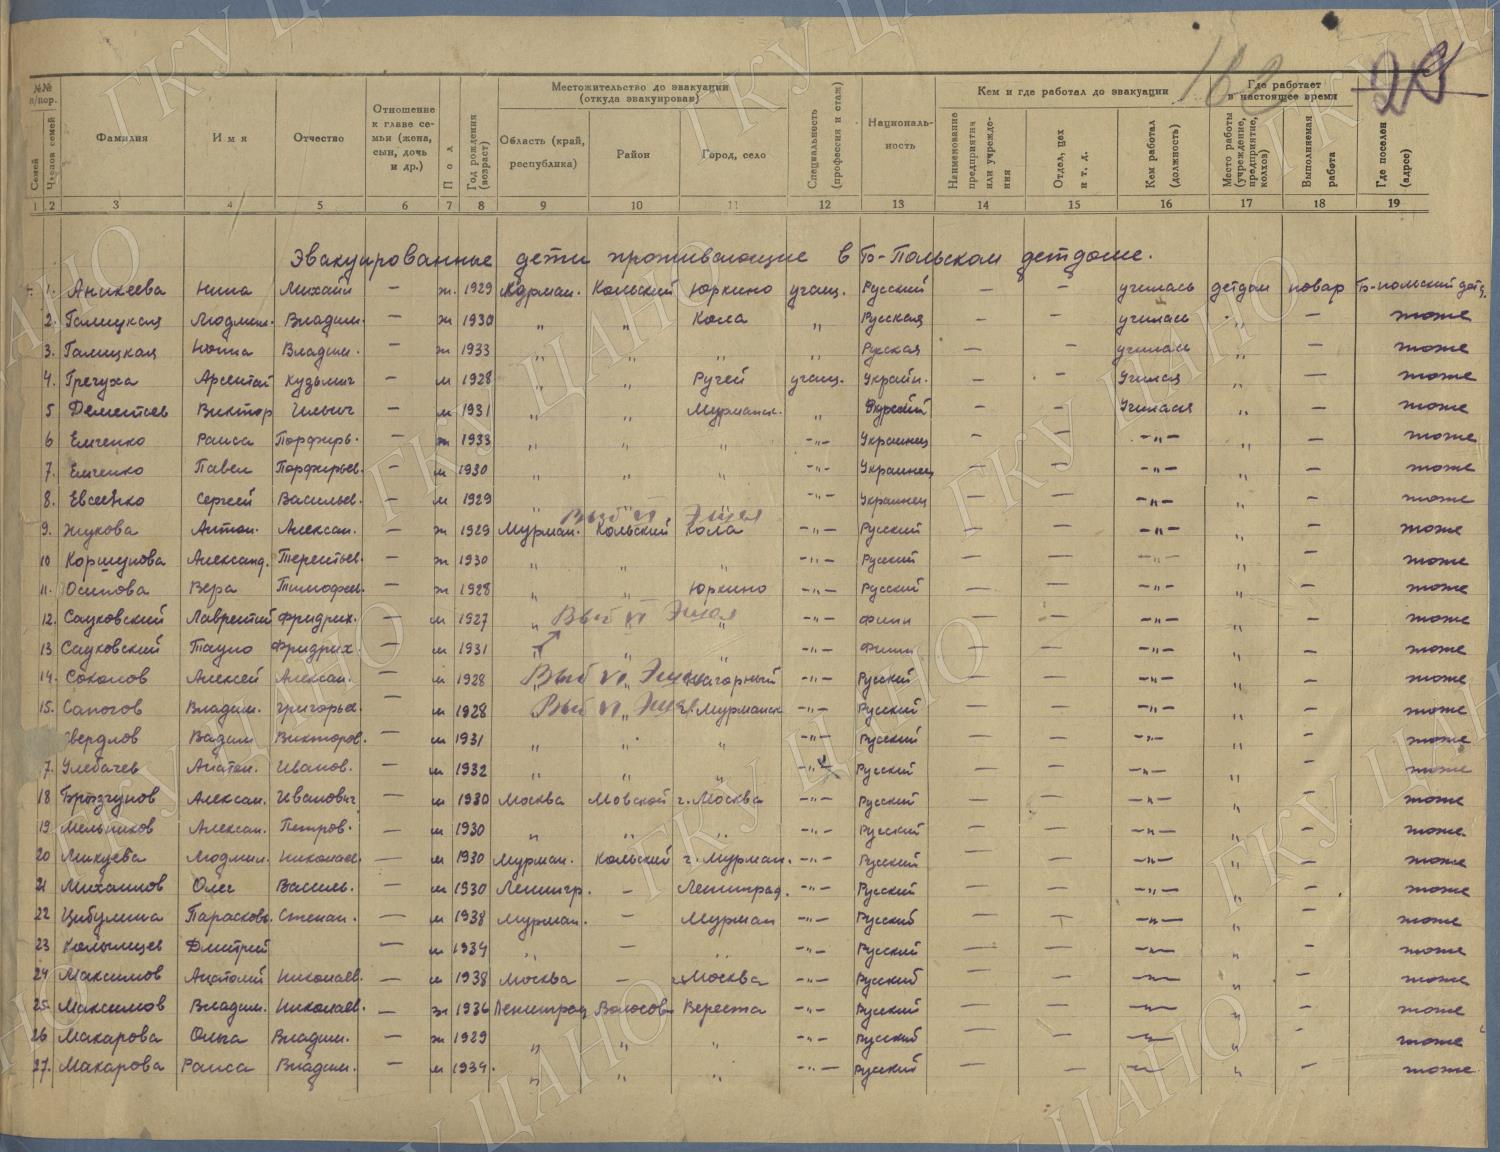 162 29
№№ п/пор.
Семей
Членов семей
Фамилия
Имя
Отчество
Отношение к главе семьи (жена, сын, дочь и др.)
Пол
Год рождения (возраст)
Местожительство до эвакуации (откуда эвакуирован)
Область (край, республика)
Район
Город, село
Специальность (профессия и стаж)
Националь-ность
Кем и где работал до эвакуации
Наименование предприятия или учрежде-ния
Отдел, цех и т. д.
Кем работал (должность)
Где работает в настоящее время
Место работы (учреждение, предприятие, колхоз)
Выполняемая работа
Где поселен (адрес)
1 2 3 4 5 6 7 8 9 10 11 12 13 14 15 16 17 18 19
Эвакуированные дети проживающие в Б-Польском детдоме.
1. Аникеева Нина Михайл — ж. 1929 Мурман. Кольский Юркино учащ. Русский — — училась детдом повар Б-польский детд.
2. Галицкая Людмил. Владим. — ж 1930 „ „ Кола „ Русская — — училась „ — тоже
3. Галицкая Нонна Владим. — ж 1933 „ „ „ „ Русская — — училась „ — тоже
4. Гречуха Арсентий Кузьмич — м 1928 „ „ Ручей учащ. Украин. — — Учился „ — тоже
5 Дементьев Виктор Ильич — м 1931 „ „ Мурманск. „ — — Учился „ — тоже
6 Емченко Раиса Порфирь. — ж 1933 „ „ „ -„- Украинец — — -„- „ — тоже
7. Емченко Павел Порфирьев. — м 1930 „ „ „ -„- Украинец — — -„- „ — тоже
8. Евсеенко Сергей Васильев. — м 1929 „ „ „ -„- Украинец — — -„- „ — тоже
Выб
9. Жукова Антон. Алексан. — ж 1929 Мурман. Кольский Кола -„- Русский — — -„- „ — тоже
10 Коршунова Александ. Терентьев. — ж 1930 „ „ „ -„- Русский — — -„- „ — тоже
11. Осипова Вера Тимофеев. — ж 1928 „ „ Юркино -„- Русский — — -„- „ — тоже
12. Сауковский Лаврентий Фридрих. — м 1927 „ Выб „ -„- Финн — — -„- „ — тоже
13 Сауковский Тауно Фридрих. — м 1931 „ „ „ -„- Финн — — -„- „ — тоже
14. Соколов Алексей Алексан. — м 1928 Выб -„- Русский — — -„- „ — тоже
15. Сапогов Владим. Григорьев. — м 1928 Выб г. Мурманск -„- Русский — — -„- „ — тоже
Свердлов Вадим Викторов. — м 1931 „ „ „ -„- Русский — — -„- „ — тоже
7. Улебачев Анатол. Иванов. — м 1932 „ „ „ -„- Русский — — -„- „ — тоже
18 Брызгунов Алексан. Иванович — м 1930 Москва г. Москва -„- Русский — — -„- „ — тоже
19 Мельников Алексан. Петров. — м 1930 „ „ „ -„- Русский — — -„- „ — тоже
20 Микуева Людмил. Николаев. — м 1930 Мурман. Кольский г. Мурман. -„- Русский — — -„- „ — тоже
21 Михайлов Олег Василь. — м 1930 Ленингр. — Ленинград. -„- Русский — — -„- „ — тоже
22 Цибулина Парасковь. Степан. — м 1938 Мурман. — Мурман -„- Русский — — -„- „ — тоже
23 Дмитрий — м 1934 „ — „ -„- Русский — — -„- „ — тоже
24 Максимов Анатолий Николаев. — м 1938 Москва — Москва -„- Русский — — -„- „ — тоже
25 Максимов Владим. Николаев. — ж 1936 Ленинград Волосов Вереста -„- Русский — — -„- „ — тоже
26 Макарова Ольга Владим. — ж 1929 „ „ „ -„- Русский — — -„- „ — тоже
27. Макарова Раиса Владим. — м 1934. „ „ „ -„- Русский — — -„- „ — тоже
ГКУ ЦАНО